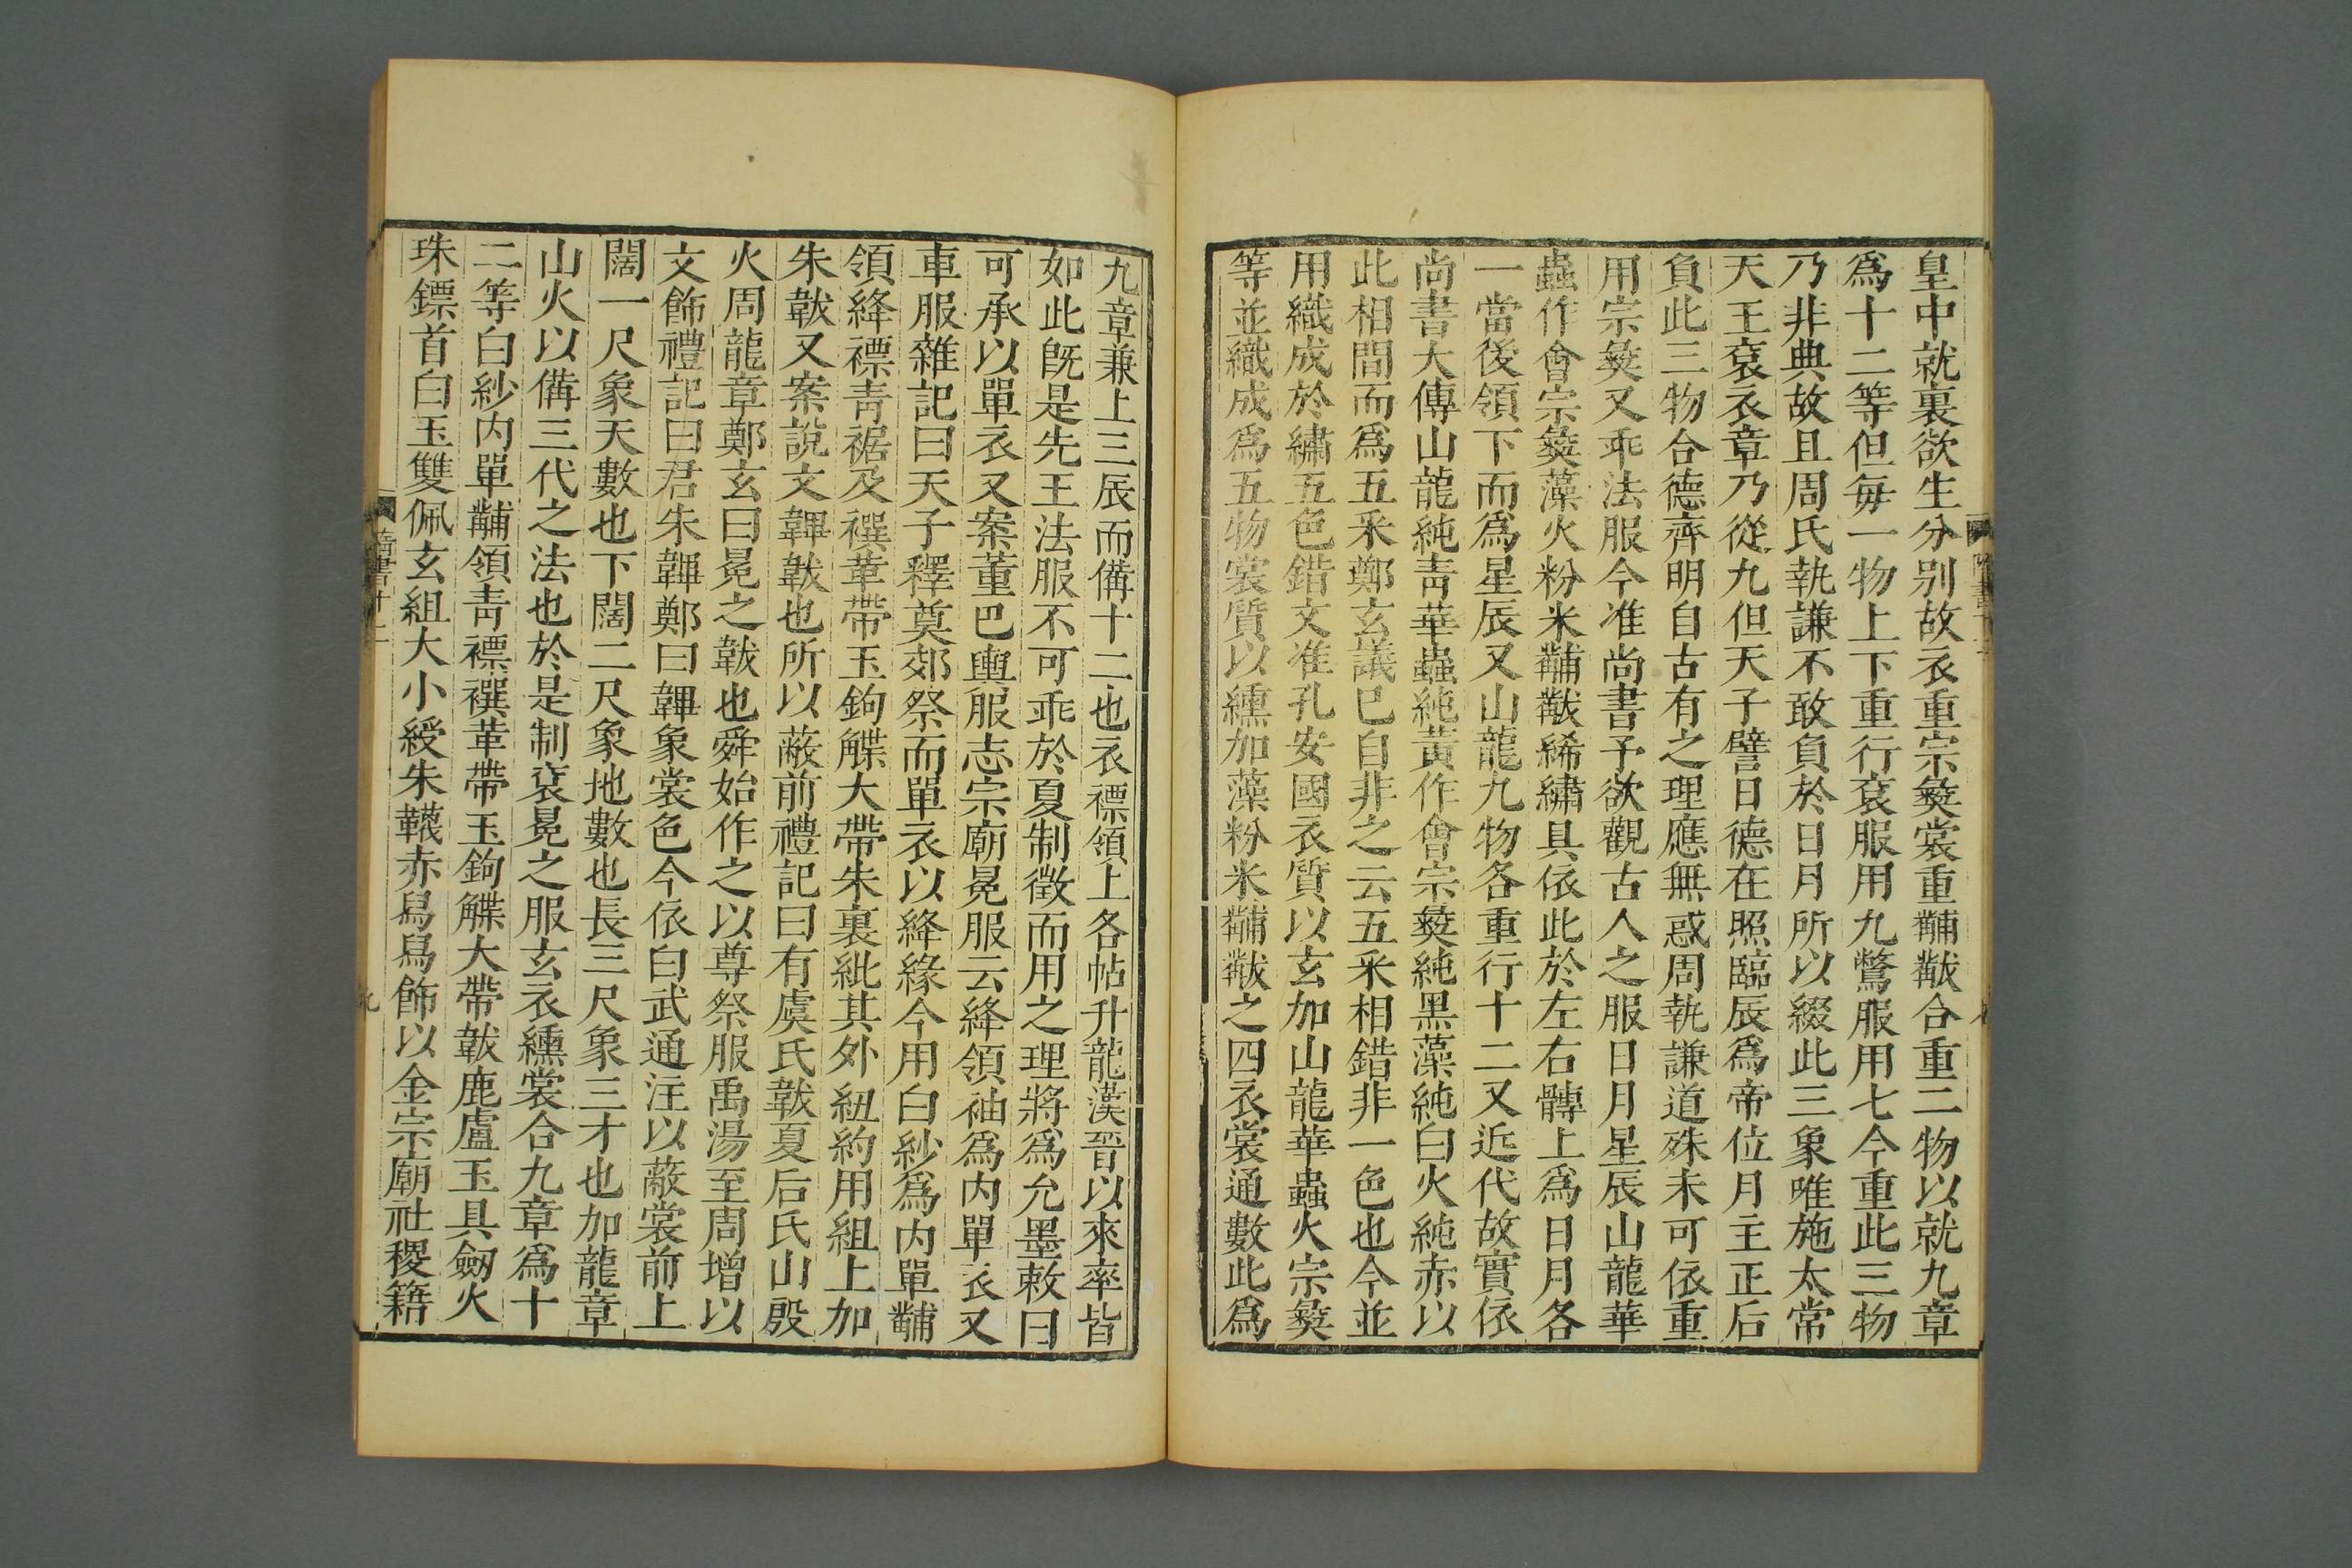 皇中就裏欲生分別故衣重宗彜裳重黼黻合重二物以就九章
爲十二等但每一物上下重行袞服用九鷩服用七今重此三物
乃非典故且周氏執謙不敢負於日月所以綴此三象唯施太常
天王袞衣章乃從九但天子譬日德在照臨辰爲帝位月主正后
負此三物合德齊明自古有之理應無惑周執謙道殊未可依重
用宗彜又乖法服今准尚書予欲觀古人之服日月星辰山龍華
蟲作會宗彜藻火粉米黼黻絺繡具依此於左右髆上爲日月各
一當後領下而爲星辰又山龍九物各重行十二又近代故實依
尚書大傳山龍純靑華蟲純黃作會宗彜純黑藻純白火純赤以
此相間而爲五釆鄭玄議巳自非之云五釆相錯非一色也今並
用織成於繡五色錯文准孔安國衣質以玄加山龍華蟲火宗彜
等並織成爲五物裳質以纁加藻粉米黼黻之四衣裳通數此爲
九章兼上三辰而備十二也衣褾領上各帖升龍漢晉以來率皆
如此旣是先王法服不可乖於夏制徵而用之理將爲允墨敕曰
可承以單衣又案董巴輿服志宗廟冕服云絳領袖爲內單衣又
車服雜記曰天子釋奠郊祭而單衣以絳緣今用白紗爲內單黼
領絳褾靑裾及襈革帶玉鉤䚢大帶朱裏紕其外紐約用組上加
朱韍又案說文韠韍也所以蔽前禮記曰有虞氏韍夏后氏山殷
火周龍章鄭玄曰冕之韍也舜始作之以尊祭服禹湯至周增以
文飾禮記曰君朱韠鄭曰韠象裳色今依白武通注以蔽裳前上
闊一尺象天數也下闊二尺象地數也長三尺象三才也加龍章
山火以備三代之法也於是制袞冕之服玄衣纁裳合九章爲十
二等白紗內單黼領靑褾襈革帶玉鉤䚢大帶韍鹿盧玉具劒火
珠鏢首白玉雙佩玄組大小綬朱韈赤舄舄飾以金宗廟社稷籍